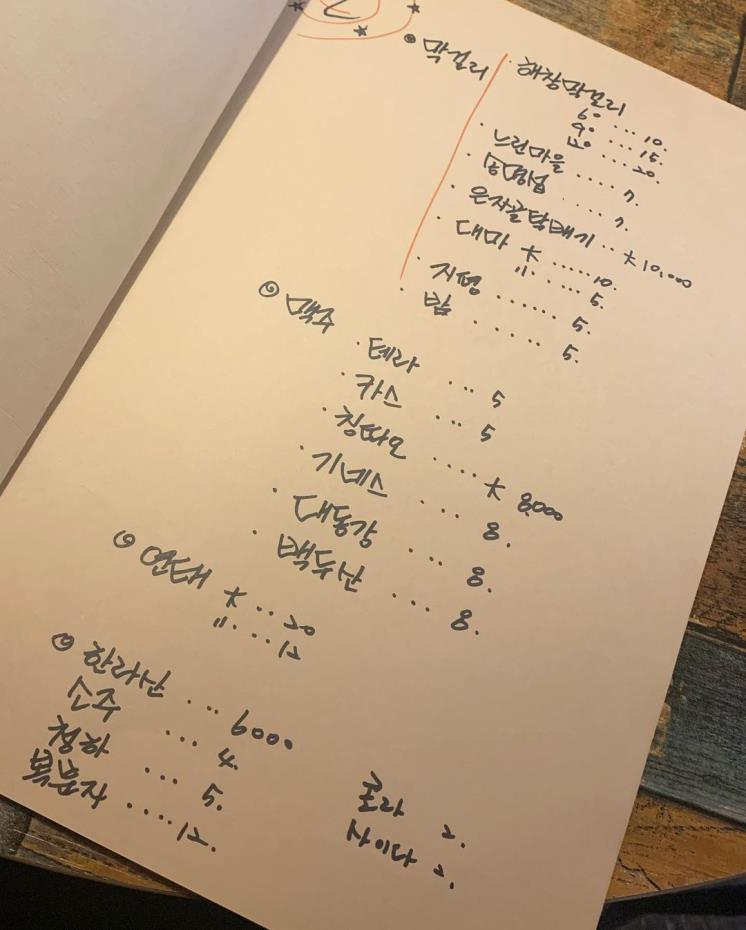 2
◎ 막걸리
· 해창막걸리
6° ... 10.
9° ... 15.
12° ... 20.
· 느린마을 .... 7.
· 송명섭 .... 7.
· 은자골탁배기 .. 大 10,000
· 대마 大 ..... 10.
〃 .... 5.
· 지평 ...... 5.
· 밤 ..... 5.
◎ 맥주
· 테라 ... 5
· 카스 ... 5
· 칭따오 .... 大 8,000
· 기네스 ... 8.
· 대동강 ... 8.
· 백두산 ... 8.
◎ 연태 大 .. 20
〃. ... 12
◎ 한라산 ... 6000
소주 ... 4.
청하 ... 5.
복분자 .... 12.
콜라 2.
사이다 2.